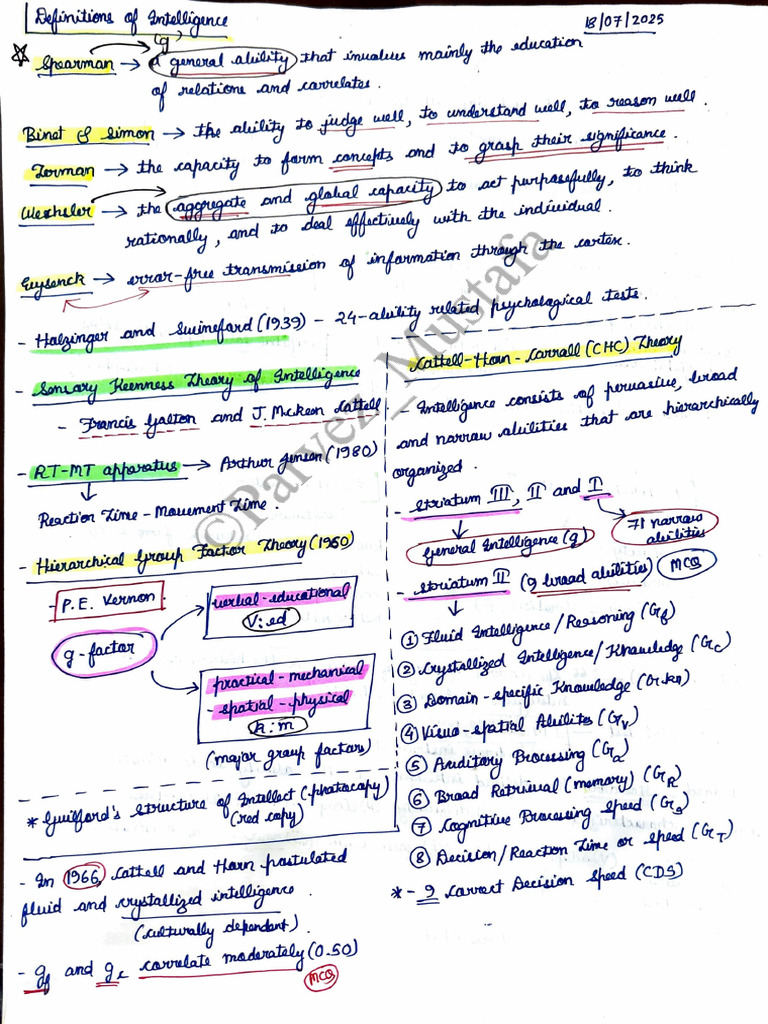 Definitions of Intelligence
18/07/2025
(g)
Spearman → a general ability that involves mainly the education
of relations and correlates.
Binet & Simon → the ability to judge well, to understand well, to reason well.
Terman → the capacity to form concepts and to grasp their significance.
Wechsler → the aggregate and global capacity to act purposefully, to think
rationally, and to deal effectively with the individual.
Eysenck → error-free transmission of information through the cortex.
- Holzinger and Swineford (1939) - 24-ability related psychological tests.
- Sensory Keenness Theory of Intelligence
- Francis Galton and J. Mckeen Cattell
- RT-MT apparatus → Arthur Jensen (1980)
Reaction Time - Movement Time.
- Hierarchical Group Factor Theory (1950)
- P.E. Vernon
g-factor
verbal-educational
V:ed
practical-mechanical
- spatial-physical
k:m
(major group factors)
* Guilford's Structure of Intellect (photocopy)
(red copy)
- In 1966, Cattell and Horn postulated
fluid and crystallized intelligence.
(culturally dependent)
- gf and gc correlate moderately (0.50)
MCQ
Cattell-Horn-Carroll (CHC) Theory
- Intelligence consists of pervasive, broad
and narrow abilities that are hierarchically
organized.
- Striatum III, II and I
General Intelligence (g)
71 narrow
abilities
- Striatum II (9 broad abilities) MCQ
① Fluid Intelligence/Reasoning (Gf)
② Crystallized Intelligence/Knowledge (Gc)
③ Domain-specific Knowledge (Gkn)
④ Visuo-spatial Abilites (Gv)
⑤ Auditory Processing (Ga)
⑥ Broad Retrieval (memory) (GR)
⑦ Cognitive Processing Speed (Gs)
⑧ Decision/Reaction Time or Speed (GT)
* - 9 Correct Decision Speed (CDS)
©Parvez_Mustafa